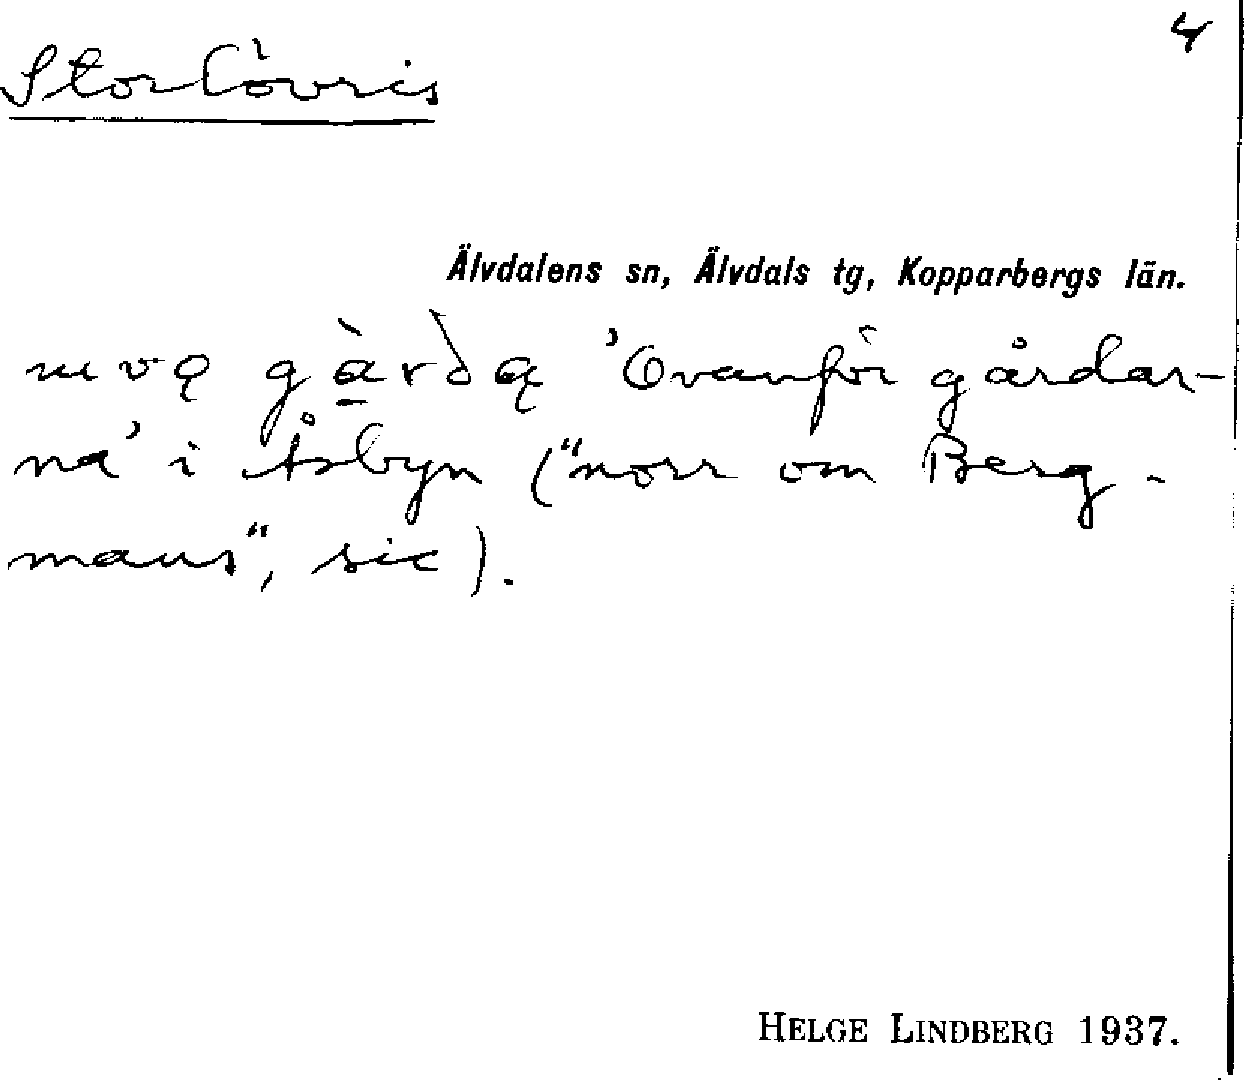 4
Storlövris
Älvdalens sn, Älvdals tg, Kopparbergs län.
'Ovanför gårdar-
na' i Åsbyn ("norr om Berg-
mans", sic).
HELGE LINDBERG 1937.